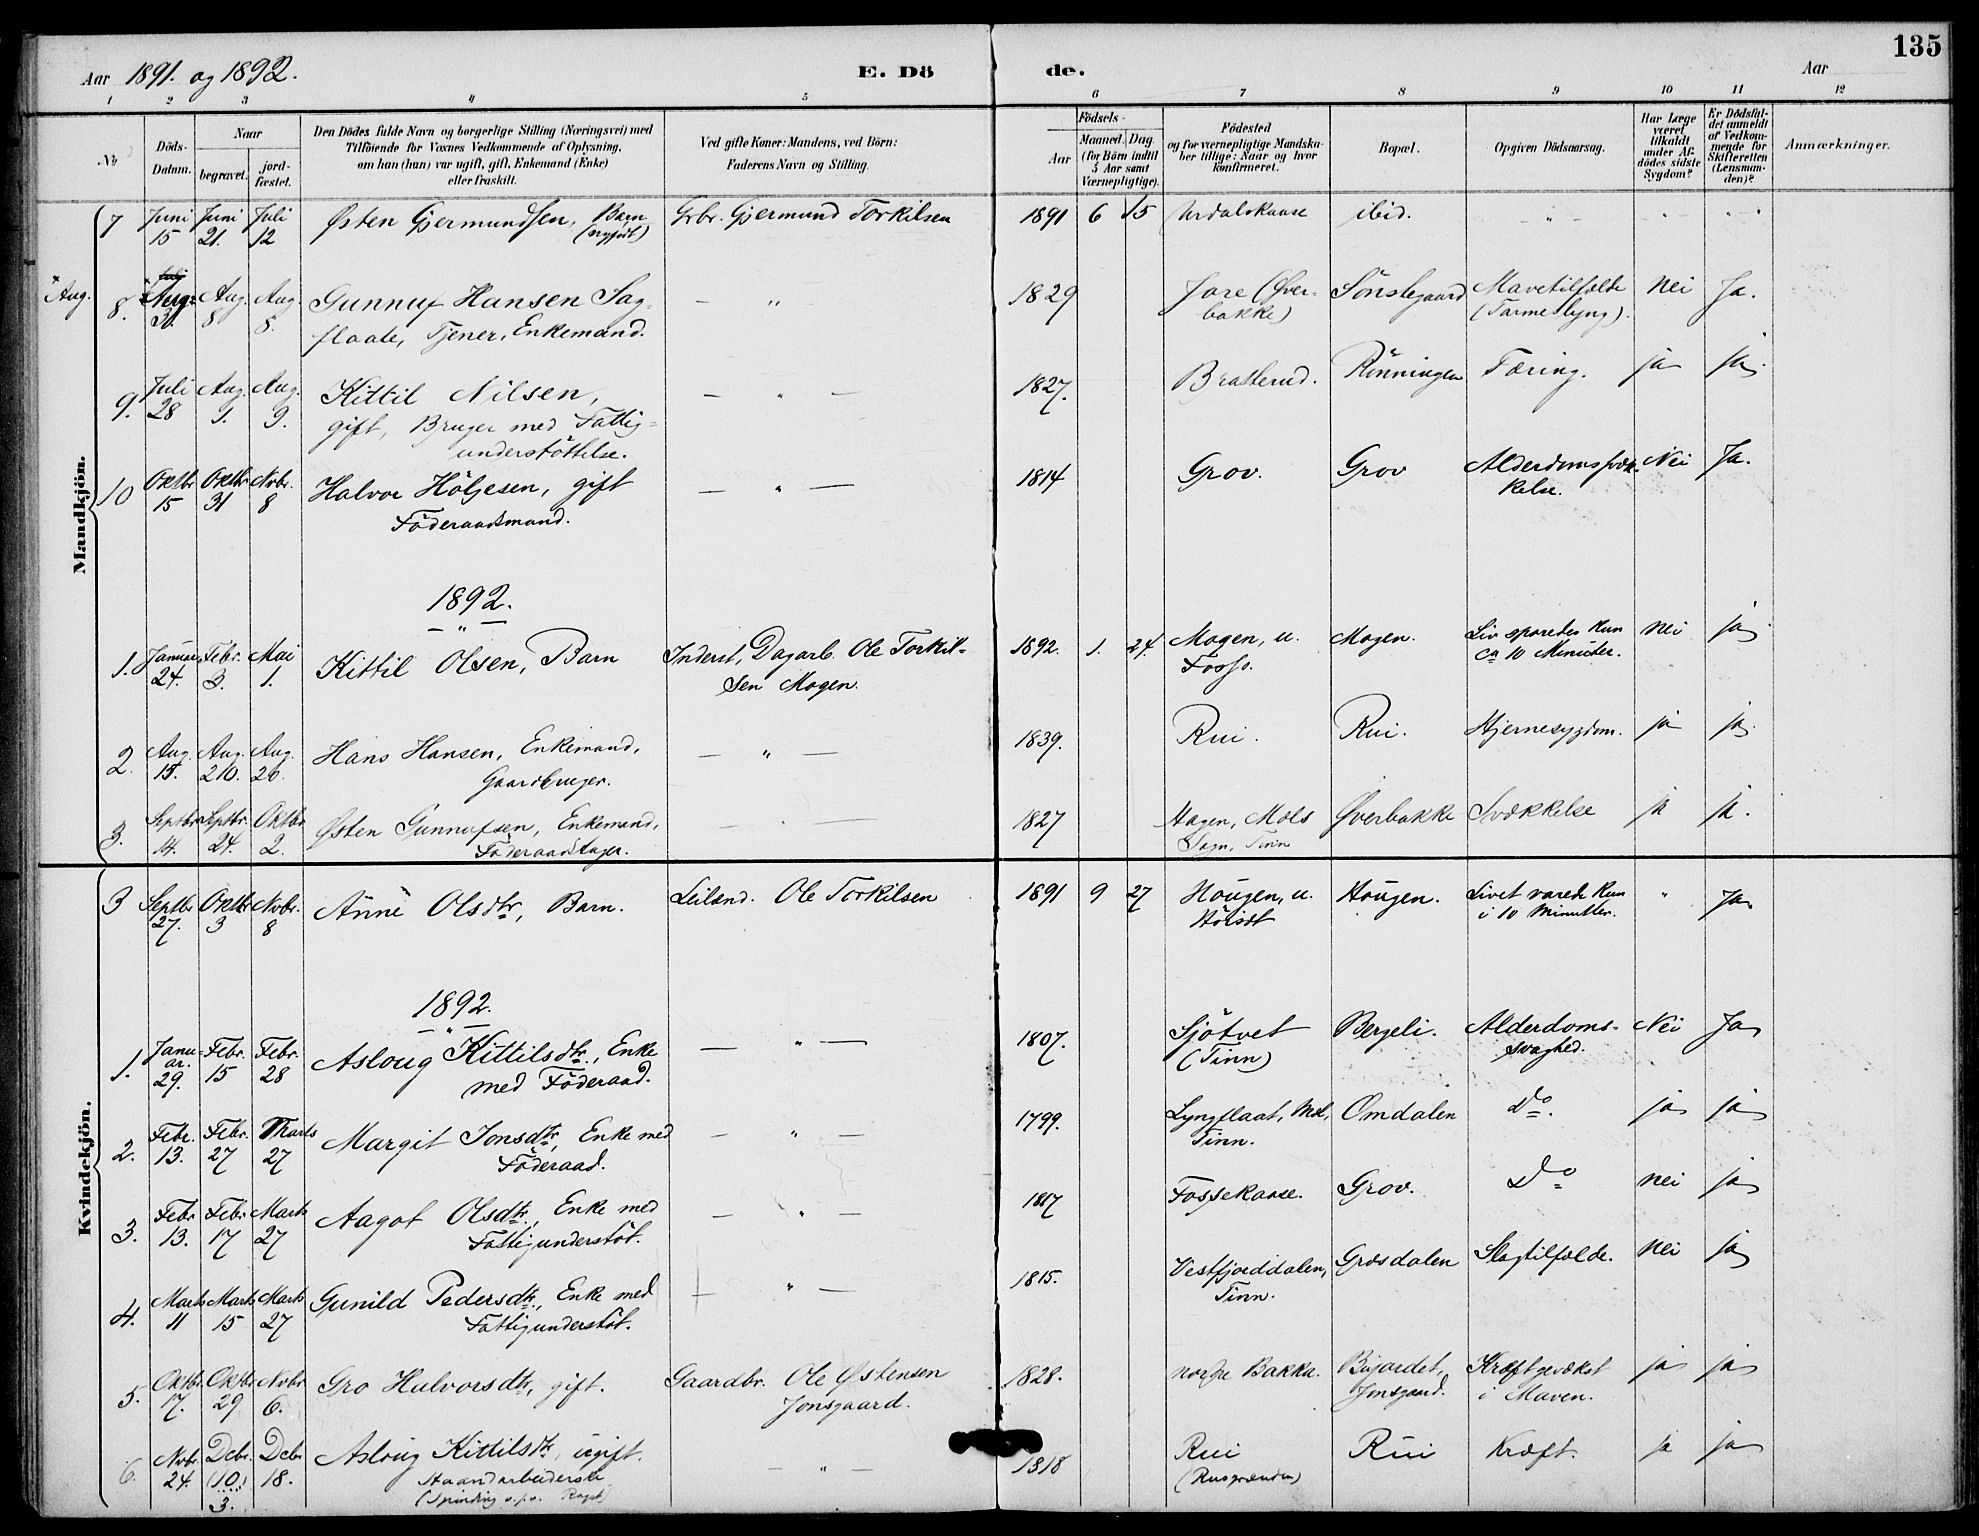 135
Aar 1891. og 1892.
E. Dö de.
Aar
1 2 3 4 5 6 7 8 9 10 11 12
No
Döds-
Datum.
Naar
begravet.
jord-
fæstet.
Den Dödes fulde Navn og borgerlige Stilling (Næringsvei) med
Tilföiende for Voxnes Vedkommende af Oplysning,
om han (hun) var ugift, gift, Enkemand (Enke)
eller fraskilt.
Ved gifte Koner: Mandens, ved Börn:
Faderens Navn og Stilling.
Födsels-
Aar
Maaned. Dag.
(for Börn indtil
5 Aar samt
Værnepligtige).
Födested
og for værnepligtige Mandska-
ber tillige: Naar og hvor
konfirmeret.
Bopæl.
Opgiven Dödsaarsag.
Har Læge
været
tilkaldt
under Af-
dödes sidste
Sygdom?
Er Dödsfal-
det anmeldt
af Vedkom-
mende for
Skifteretten
(Lensman-
den)?
Anmærkninger.
Mandkjön.
7 Juni 15 Juni 21. Juli 12 Østen Gjermundsen, Barn (nyfødt) Grbr. Gjermund Torkilsen 1891 6 15 Urdalskaase ibid. " " "
Aug. 8. Aug. 3. Aug. 8 Aug. 8. Gunnuf Hansen Sag-
flaate, Tjener, Enkemand. — " 1829 Jore (Øver-
bakke) Sönstegaard Mavetilfælde
(Tarmeslyng). Nei Ja.
9. Juli 28 Aug. 1. Aug. 9. Kittil Nilsen,
gift, Bruger med Fattig-
understöttelse. — " — 1827. Bratterud. Rönningen Tæring. ja ja.
10 Oktbr. 15 Oktbr. 31 Nvbr. 8 Halvor Höljesen, gift
Föderaadsmand. — " — 1814 Grov. Grov Alderdomssvæk-
kelse. Nei Ja.
1892.
— " —
1. Januar 24. Febr. 3. Mai 1. Kittil Olsen, Barn Inderst, Dagarb. Ole Torkil-
sen Mogen. 1892. 1. 24. Mogen, u.
Fosso. Mogen. Liv sporedes kun
ca 10 Minuter. nei ja
2. Aug. 15. Aug. 210. Aug. 20. Hans Hansen, Enkemand,
Gaardbruger. — " — 1839. Rui. Rui. Hjernesygdom. ja ja.
3. Septbr. 14. Septbr. 24. Oktbr 2. Østen Gunnufsen, Enkemand,
Föderaadstager. 1827 Hagen, Mæls
Sogn, Tinn Øverbakke Svækkelse ja ja.
Kvindekjön.
3 Septbr 27. Oktbr 3 Nvbr. 8 Anne Olsdtr, Barn. Leilænd. Ole Torkilsen 1891 9 27 Hougen, u.
Höisæt Hougen. Livet varede kun
i 10 Minutter. " Ja.
1892.
— " —
1. Janu-
ar. 29. Febr. 15 Febr. 28 Asloug Kittilsdtr., Enke
med Föderaad. — " — 1807. Sjötvet
(Tinn) Bergeli. Alderdoms-
svaghed. Nei Ja
2. Febr. 13. Febr. 27 Marts 27 Margit Jonsdtr, Enke med
Föderaad. — " — 1799. Lyngflaat, Mæl,
Tinn. Omdalen Do. ja ja
3. Febr 13. Febr 17 Marts 27 Aagot Olsdtr., Enke med
Fattigunderstöt. — " — 1817 Fossekaase. Grov. Do nei ja
4. Marts 11 Marts 15 Marts 27 Gunild Pedersdtr., Enke med
Fattigunderstöt. — " — 1815. Vestfjorddalen,
Tinn. Græsdalen Slagtilfælde. Nei ja
5. Oktbr. 17. Oktbr 29 Nvbr 6. Gro Halvorsdtr, gift. Gaardbr. Ole Østensen
Jonsgaard. 1828. nordre Bakka. Bijordet,
Jonsgaard. Kræftgevækst
i Maven. ja ja
6. Nvbr. 24. Dcbr. (10.) 3. Dcbr 18. Asloug Kittilsdtr, ugift.
Haandarbeiderske
(Spinding o.s.v. — " — 1818 Rui
(Ruigrænden) Rui Kræft. ja ja